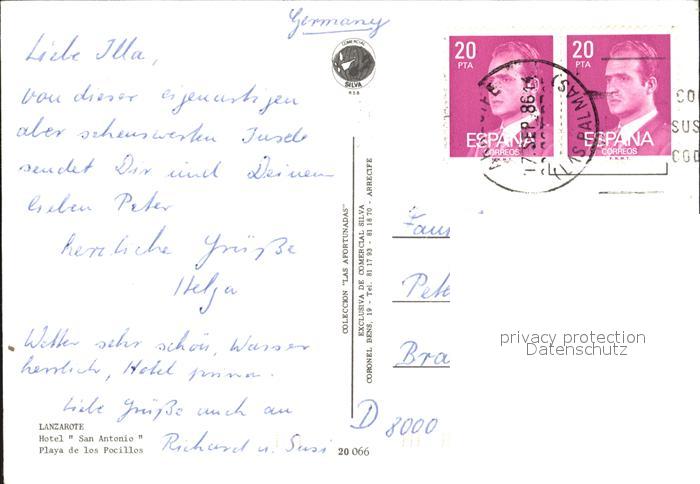 Germany
Liebe Illa,
von dieser eigenartigen
aber sehenswerten Insel
sendet Dir und Deinem
lieben Peter
herrliche Grüße
Helga
Wetter sehr schön, Wasser
herrlich, Hotel prima.
Liebe Grüße auch an
Richard u. Susi
LANZAROTE
Hotel " San Antonio "
Playa de los Pocillos
20 066
COMERCIAL
SILVA
COLECCION "LAS AFORTUNADAS"
EXCLUSIVA DE COMERCIAL SILVA
CORONEL BENS, 19 - Tel. 81 17 93 - 81 18 70 - ARRECIFE
20
PTA
ESPAÑA
CORREOS
F.N.M.T.
20
PTA
ESPAÑA
CORREOS
F.N.M.T.
SEP. 86
(LAS PALMAS)
CO
SUS
COD
Fam
Pete
Bra
D 8000
privacy protection
Datenschutz